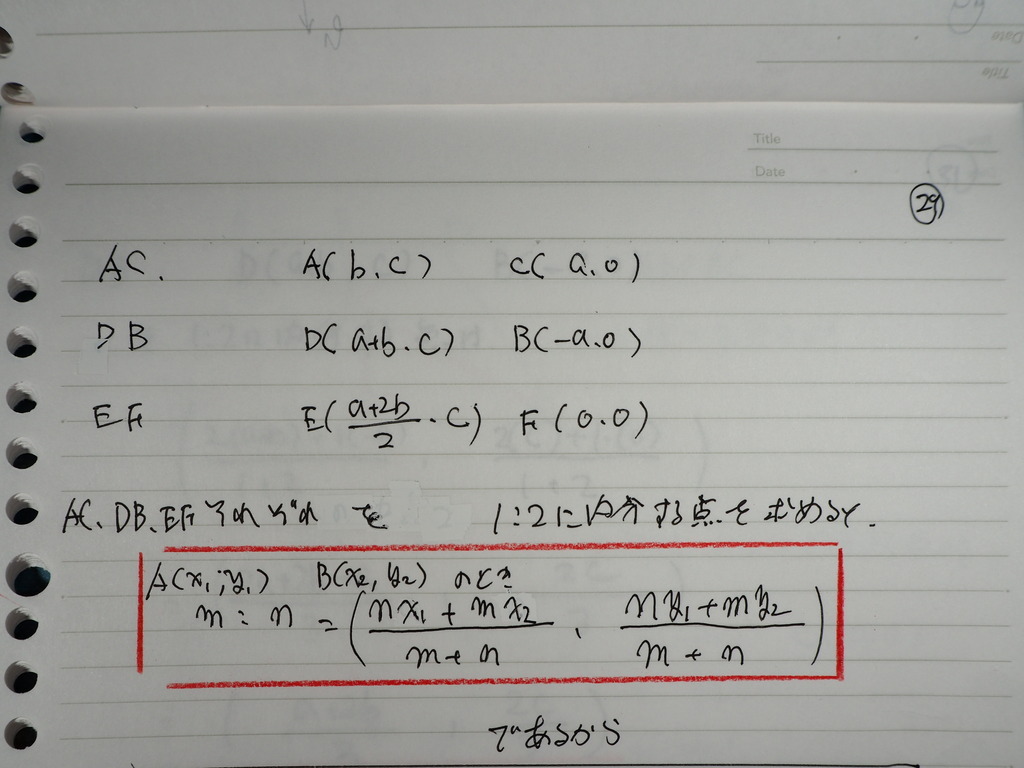 Title
Date
㉙
AC. A(b.c) C(a.0)
DB D(a+b.c) B(-a.0)
EF E(\frac{a+2b}{2}.c) F(0.0)
AC、DB、EFそれぞれを 1:2に内分する点を求めると.
A(x₁,y₁) B(x₂,y₂) のとき
m:n = (\frac{nx₁+mx₂}{m+n}, \frac{ny₁+my₂}{m+n})
であるから